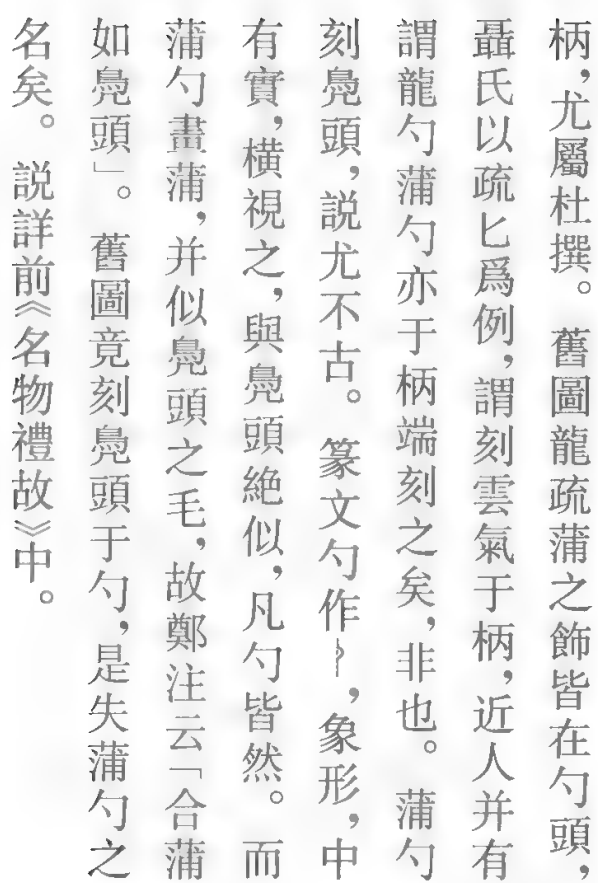 柄，尤屬杜撰。舊圖龍疏蒲之飾皆在勺頭，
聶氏以疏匕爲例，謂刻雲氣于柄，近人并有
謂龍勺蒲勺亦于柄端刻之矣，非也。蒲勺
刻鳧頭，説尤不古。篆文勺作，象形，中
有實，橫視之，與鳧頭絶似，凡勺皆然。而
蒲勺畫蒲，并似鳧頭之毛，故鄭注云「合蒲
如鳧頭」。舊圖竟刻鳧頭于勺，是失蒲勺之
名矣。説詳前《名物禮故》中。